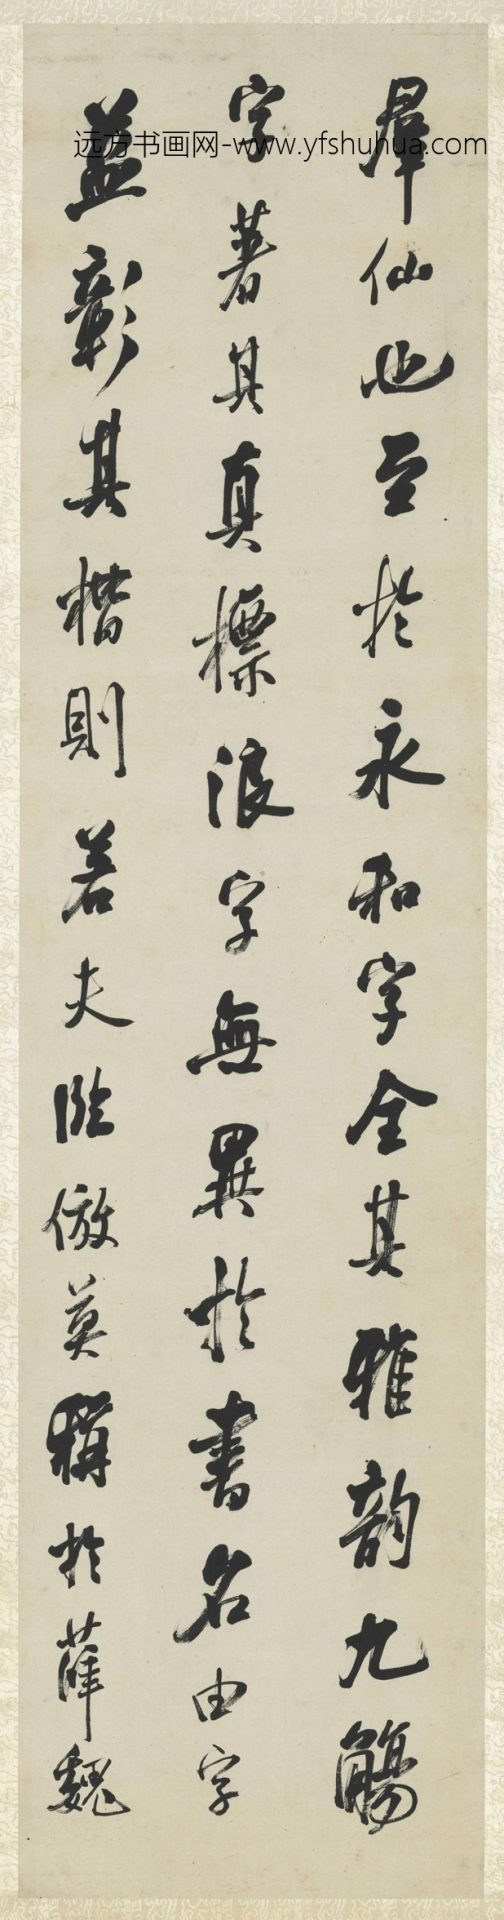 远方书画网-www.yfshuhua.com
羣仙也至於永和字全其雅韵九觴
字著其真標浪字無異於書名由字
益彰其楷則若夫臨倣莫稱於薛魏